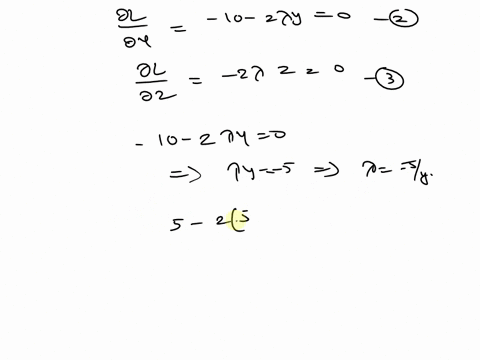 ∂L/∂y = -10-2λy = 0 -②
∂L/∂z = -2λ z = 0 -③
- 10-2λy=0
=> λy=-5 => λ=-5/y.
5 - 2(-5